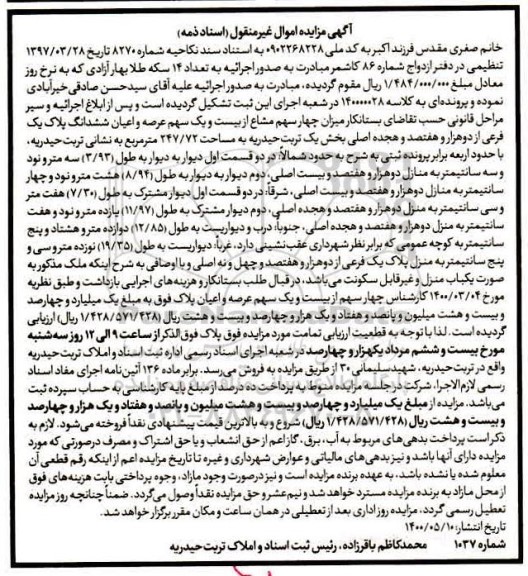 آگهی مزایده اموال غیرمنقول (اسناد ذمه)
خانم صغری مقدس فرزند اکبر به کد ملی ۰۹۰۲۲۶۸۲۲۸ به استناد سند نکاحیه شماره ۸۲۷۰ تاریخ ۱۳۹۷/۰۳/۲۸
تنظیمی در دفتر ازدواج شماره ۸۶ کاشمر مبادرت به صدور اجرائیه به تعداد ۱۴ سکه طلا بهار آزادی که به نرخ روز
معادل مبلغ ۱/۴۸۴/۰۰۰/۰۰۰ ریال مقوم گردیده، مبادرت به صدور اجرائیه علیه آقای سیدحسن صادقی خیرآبادی
نموده و پرونده‌ای به کلاسه ۱۴۰۰۰۰۰۲۸ در شعبه اجرای این ثبت تشکیل گردیده است و پس از ابلاغ اجرائیه و سیر
مراحل قانونی حسب تقاضای بستانکار میزان چهار سهم مشاع از بیست و یک سهم عرصه و اعیان ششدانگ پلاک یک
فرعی از دوهزار و هفتصد و هجده اصلی بخش یک تربت حیدریه به مساحت ۲۴۷/۷۲ مترمربع به نشانی تربت حیدریه،
با حدود اربعه برابر پرونده ثبتی به شرح به حدود شمالاً: در دو قسمت اول دیوار به دیوار به طول (۳/۹۳) سه متر و نود
و سه سانتیمتر به منازل دوهزار و هفتصد و بیست اصلی، دوم دیوار به دیوار به طول (۸/۹۴) هشت متر و نود و چهار
سانتیمتر به منازل دوهزار و هفتصد و بیست اصلی، شرقاً: در دو قسمت اول دیوار مشترک به طول (۷/۳۰) هفت متر
و سی سانتیمتر به منزل دوهزار و هفتصد و هجده اصلی، دوم دیوار مشترک به طول (۱۱/۹۷) یازده متر و نود و هفت
سانتیمتر به منزل دوهزار و هفتصد و هجده اصلی، جنوباً: درب و دیواریست به طول (۱۲/۸۵) دوازده متر و هشتاد و پنج
سانتیمتر به کوچه عمومی که برابر نظر شهرداری عقب‌نشینی دارد، غرباً: دیواریست به طول (۱۹/۳۵) نوزده متر و سی و
پنج سانتیمتر به منزل پلاک یک فرعی از دوهزار و هفتصد و چهل و نه اصلی و با اوصافی به شرح اینکه ملک مذکور به
صورت یکباب منزل و غیرقابل سکونت می‌باشد، در قبال طلب بستانکار و هزینه‌های اجرایی بازداشت و طبق نظریه
مورخ ۱۴۰۰/۰۳/۰۴ کارشناس چهار سهم از بیست و یک سهم عرصه و اعیان پلاک فوق به مبلغ یک میلیارد و چهارصد
و بیست و هشت میلیون و پانصد و هفتاد و یک هزار و چهارصد و بیست و هشت ریال (۱/۴۲۸/۵۷۱/۴۲۸ ریال) ارزیابی
گردیده است. لذا با توجه به قطعیت ارزیابی تمامت مورد مزایده فوق پلاک فوق‌الذکر از ساعت ۹ الی ۱۲ روز سه‌شنبه
مورخ بیست و ششم مرداد یکهزار و چهارصد در شعبه اجرای اسناد رسمی اداره ثبت اسناد و املاک تربت حیدریه
واقع در تربت حیدریه، شهید سلیمانی ۳۰ از طریق مزایده به فروش می‌رسد. برابر ماده ۱۳۶ آئین‌نامه اجرای مفاد اسناد
رسمی لازم‌الاجرا، شرکت در جلسه مزایده منوط به پرداخت ده درصد از مبلغ پایه کارشناسی به حساب سپرده ثبت
می‌باشد. مزایده از مبلغ یک میلیارد و چهارصد و بیست و هشت میلیون و پانصد و هفتاد و یک هزار و چهارصد
و بیست و هشت ریال (۱/۴۲۸/۵۷۱/۴۲۸ ریال) شروع و به بالاترین قیمت پیشنهادی نقداً فروخته می‌شود. لازم به
ذکر است پرداخت بدهی‌های مربوط به آب، برق، گاز اعم از حق انشعاب و یا حق اشتراک و مصرف درصورتی که مورد
مزایده دارای آنها باشد و نیز بدهی‌های مالیاتی و عوارض شهرداری و غیره تا تاریخ مزایده اعم از اینکه رقم قطعی آن
معلوم شده یا نشده باشد، به عهده برنده مزایده است و نیز درصورت وجود مازاد، وجوه پرداختی بابت هزینه‌های فوق
از محل مازاد به برنده مزایده مسترد خواهد شد و نیم عشر و حق مزایده نقداً وصول می‌گردد. ضمناً چنانچه روز مزایده
تعطیل رسمی گردد، مزایده روز اداری بعد از تعطیلی در همان ساعت و مکان مقرر برگزار خواهد شد.
تاریخ انتشار: ۱۴۰۰/۰۵/۱۰
شماره ۱۰۳۷ محمدکاظم باقرزاده، رئیس ثبت اسناد و املاک تربت حیدریه